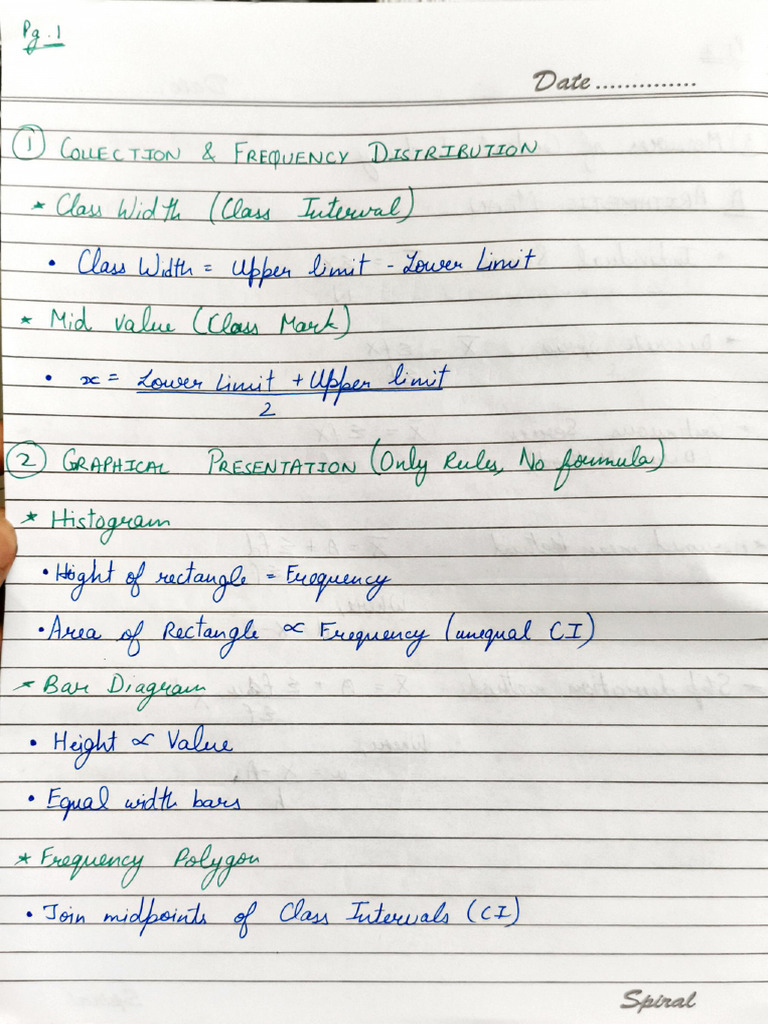 Pg. 1
Date ..............
① COLLECTION & FREQUENCY DISTRIBUTION
* Class Width (Class Interval)
• Class Width = Upper limit - Lower Limit
* Mid value (Class Mark)
• x = Lower Limit + Upper limit
2
② GRAPHICAL PRESENTATION (Only Rules, No formula)
* Histogram
• Hight of rectangle = Frequency
• Area of Rectangle ∝ Frequency (unequal CI)
* Bar Diagram
• Height ∝ Value
• Equal width bars
* Frequency Polygon
• Join midpoints of Class Intervals (CI)
Spiral